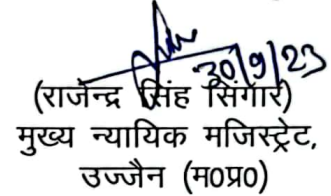 30/9/23
(राजेन्द्र सिंह सिंगार)
मुख्य न्यायिक मजिस्ट्रेट,
उज्जैन (म०प्र०)